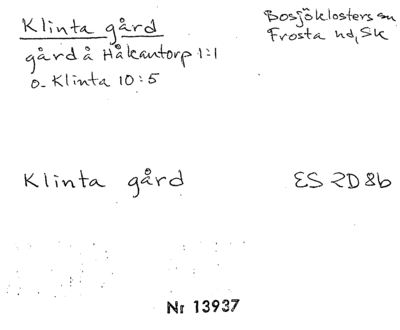 Klinta gård
Bosjöklosters sn
Frosta hd, Sk
gård å Håkantorp 1:1
o. Klinta 10:5
Klinta gård
ES 2D 8b
Nr 13937